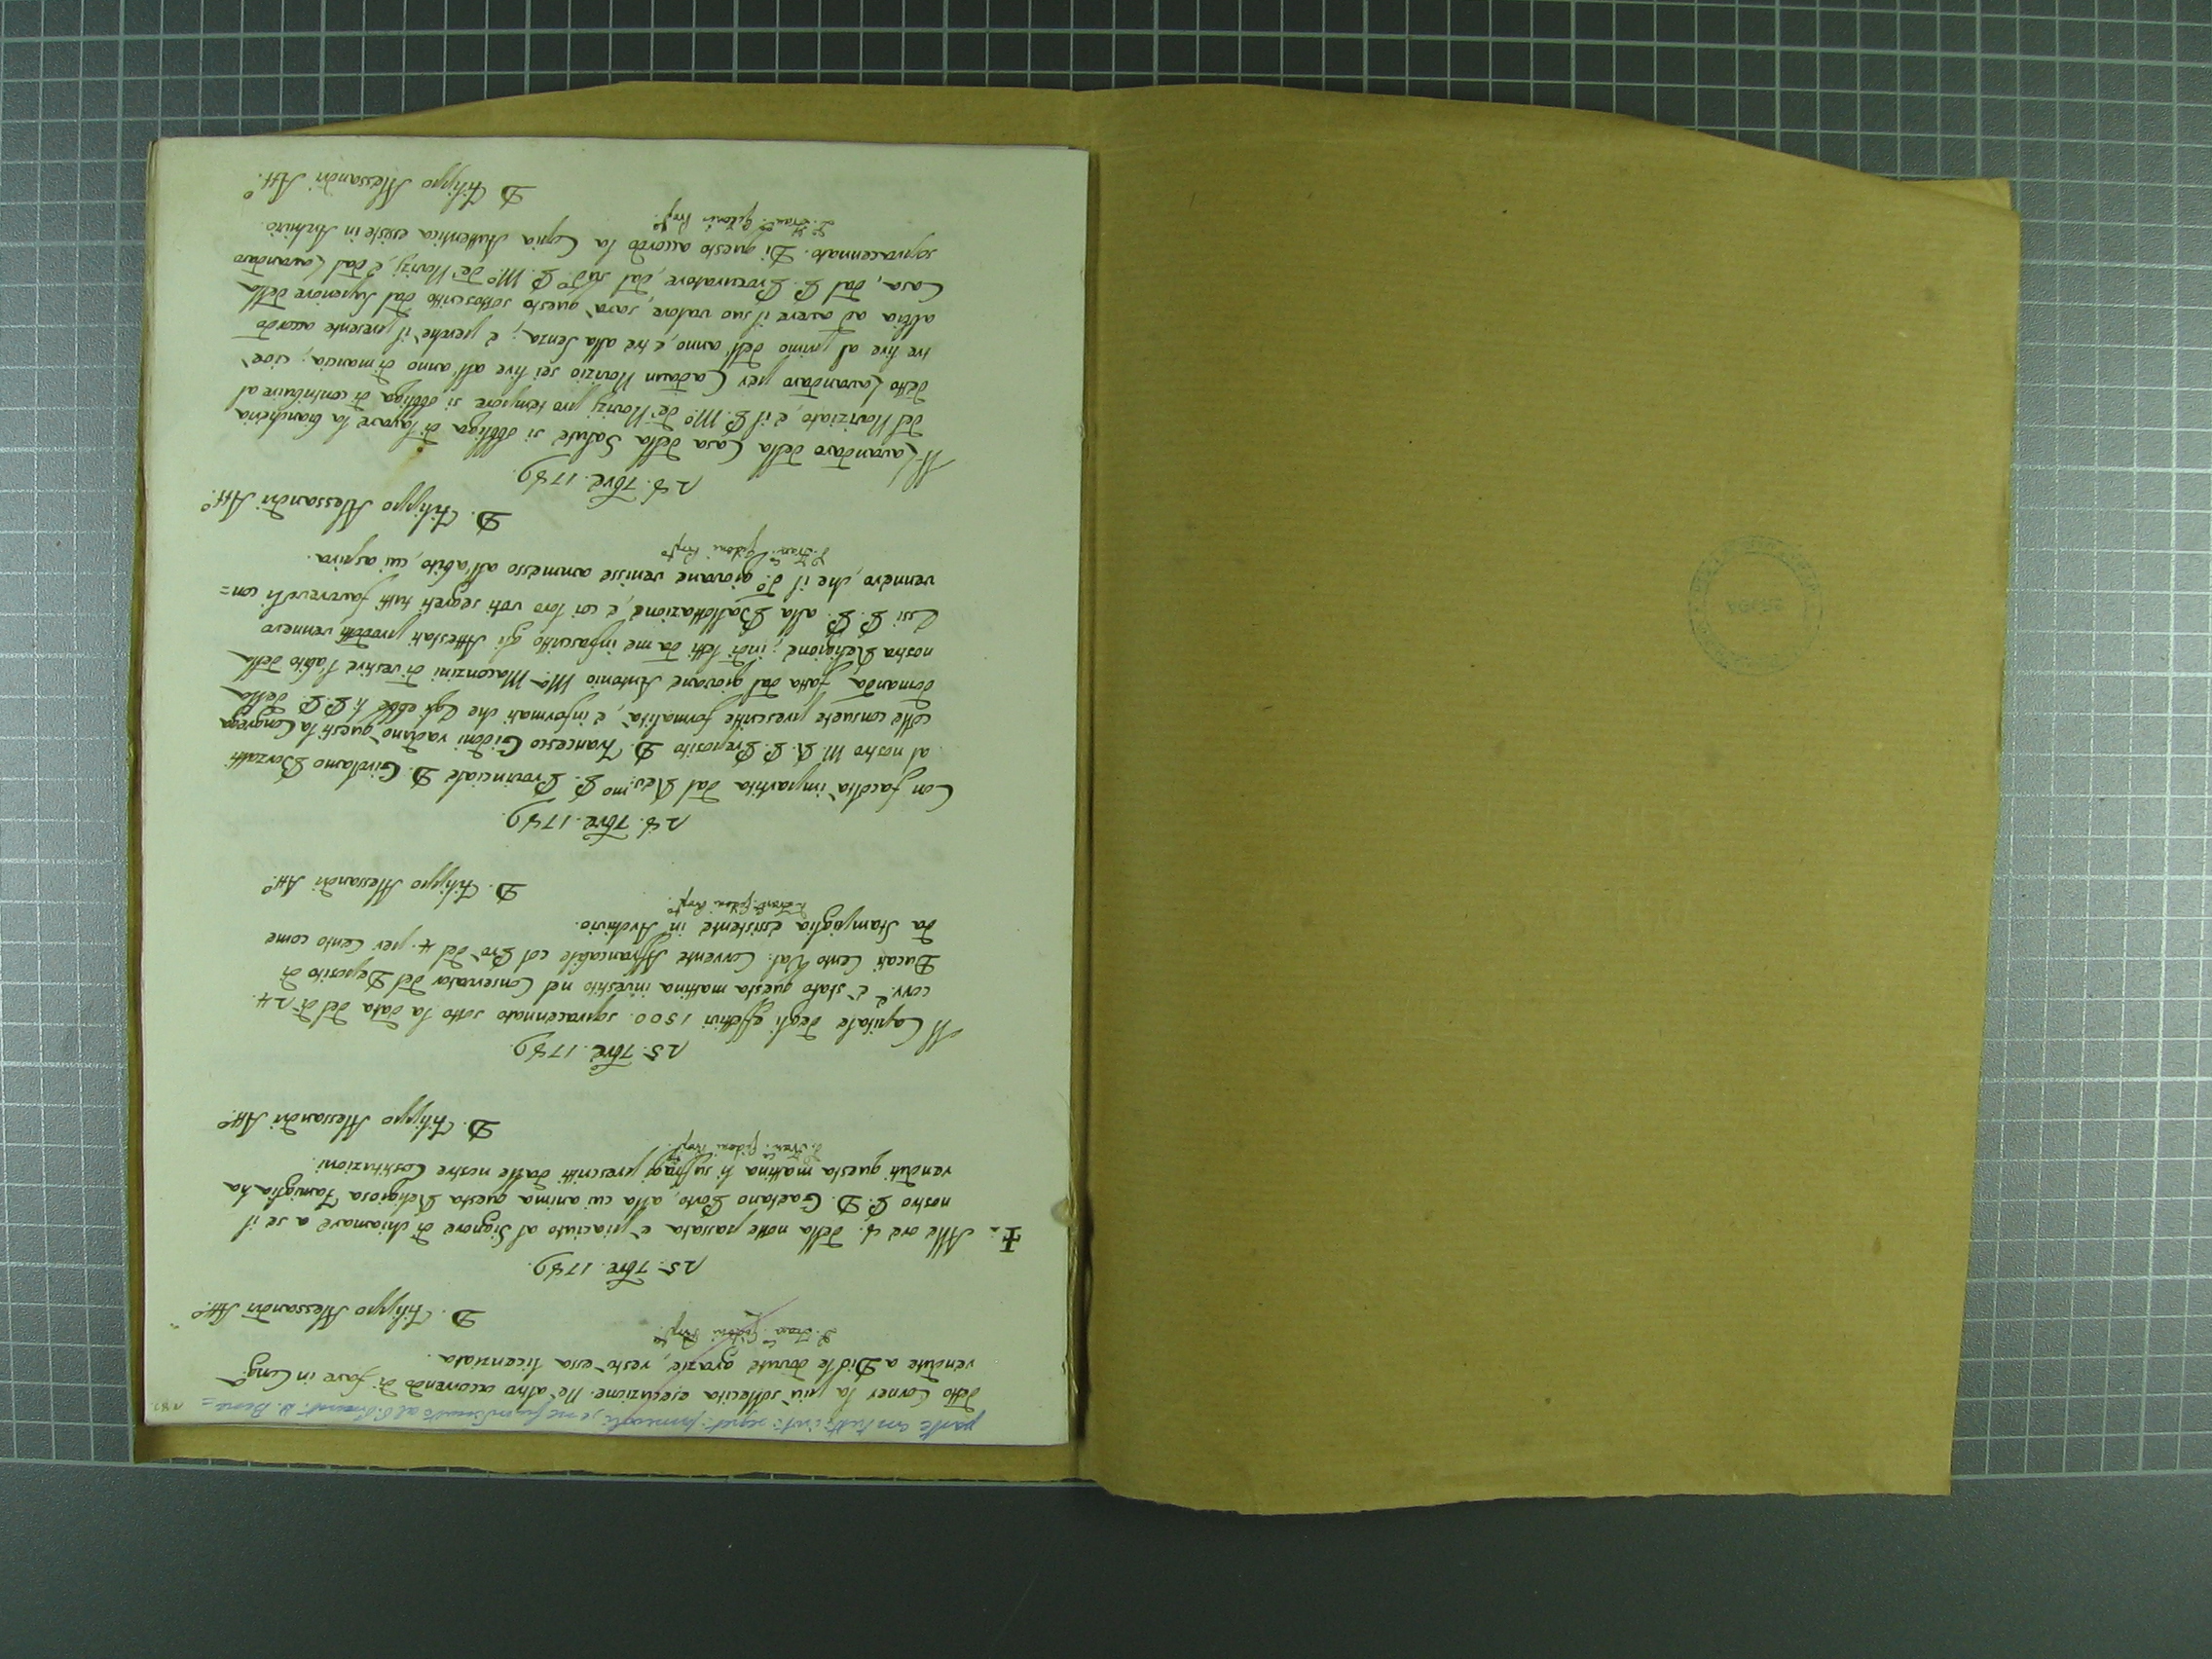 parte con tutti i voti segreti favorevoli, e ne fu ordinato al P. D. Bene=
detto Corner la più sollecita esecuzione. Ne' altro accorrendo di fare in Cong.
vendute a Dio le dovute grazie, restò essa licenziata.
P. Fran.co Gidoni Prep.to
D. Filippo Alessandri Att.o
25. 7bre. 1789.
✝. Alle ore 4. della notte passata è piaciuto al Signore di chiamare a se il
nostro P. D. Gaetano Porto, alla cui anima questa Religiosa Famiglia ha
venduti questa mattina li suffragj prescritti dalle nostre Costituzioni.
P. Fran.co Gidoni Prep.to
D. Filippo Alessandri Att.o
25. 7bre. 1789.
Il Capitale degli effettivi 1500. sopracennato sotto la data del dì 24.
corr.e è stato questa mattina investito nel Conservator del Deposito di
Ducati Cento Val: Corrente Affrancabile col Prò del 4. per Cento come
da Stampiglia essistente in Archivio.
P. Fran.co Gidoni Prep.to
D. Filippo Alessandri Att.o
28. 7bre. 1789.
Con facoltà impartita dal Rev.mo P. Provinciale D. Girolamo Barzatti
al nostro M. R. P. Preposito D. Francesco Gidoni radunò questi la Congrega
colle consuete prescritte formalità, e informati che Egli ebbe li P. P. della
domanda fatta dal giovane Antonio M.a Maconzini di vestire l'abito della
nostra Religione; indi letti da me infrascritto gli Attestati prodotti vennero
Essi P. P. alla Ballottazione, e coi loro voti segreti tutti favorevoli con=
vennero, che il d.o giovane venisse ammesso all'abito, cui aspira.
P. Fran.co Gidoni Prep.to
D. Filippo Alessandri Att.o
28. 7bre. 1789.
Il Lavandaro della Casa della Salute si obbliga di lavare la biancheria
del Noviziato, e il P. M.o de' Novizj pro tempore si obbliga di contribuire al
detto Lavandaro per Cadaun Novizio sei lire all'anno di mancia; cioè
tre lire al primo dell'anno, e tre alla Sensa; e perchè il presente accordo
abbia ad avere il suo valore, sarà questo sottoscritto dal Superiore della
Casa, dal P. Procuratore, dal sud.o P. M.o de' Novizj, e dal Lavandaro
sopracennato. Di questo accordo la Copia Auttentica esiste in Archivio.
P. Fran.co Gidoni Prep.to
D Filippo Alessandri Att.o